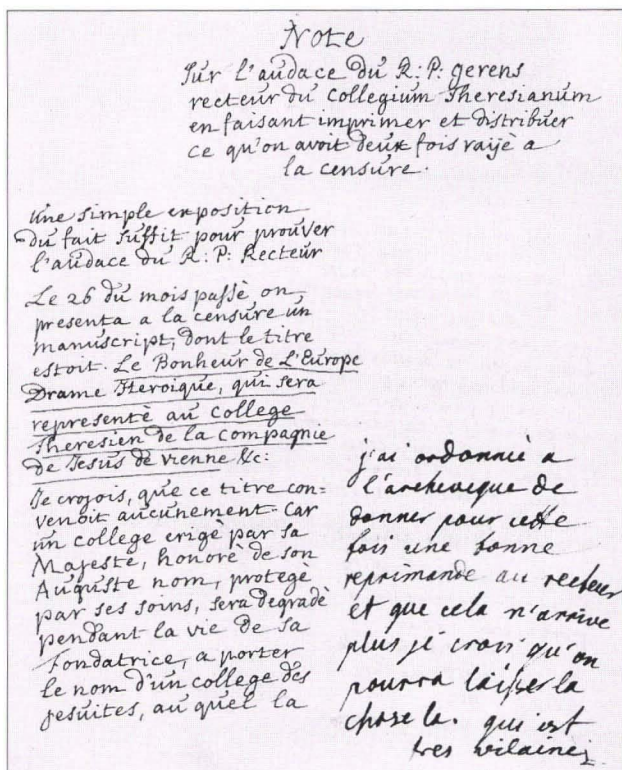 Note
Sur l'audace du R: P: gerens
recteur du Collegium Theresianum
en faisant imprimer et distribuer
ce qu'on avoit deux fois raijè a
la censure.
Une simple exposition
du fait suffit pour prouver
l'audace du R: P: Recteur
Le 26 du mois passè on
presenta a la censure un
manuscript, dont le titre
estoit. Le Bonheur de L'Europe
Drame Heroique, qui sera
representè au college
Theresien de la compagnie
de Jesus de vienne &c:
Je crojois, que ce titre con-
venoit aucunement. Car
un college erigè par sa
Majeste, honorè de son
Auguste nom, protegè
par ses soins, sera degradè
pendant la vie de sa
Fondatrice, a porter
le nom d'un college des
jesuites, au quel la
j'ai ordonnié a
l'archeveque de
donner pour cette
fois une bonne
reprimande au recteur
et que cela n'arrive
plus je crois qu'on
pourra laisser la
chose la. qui est
tres vilaine